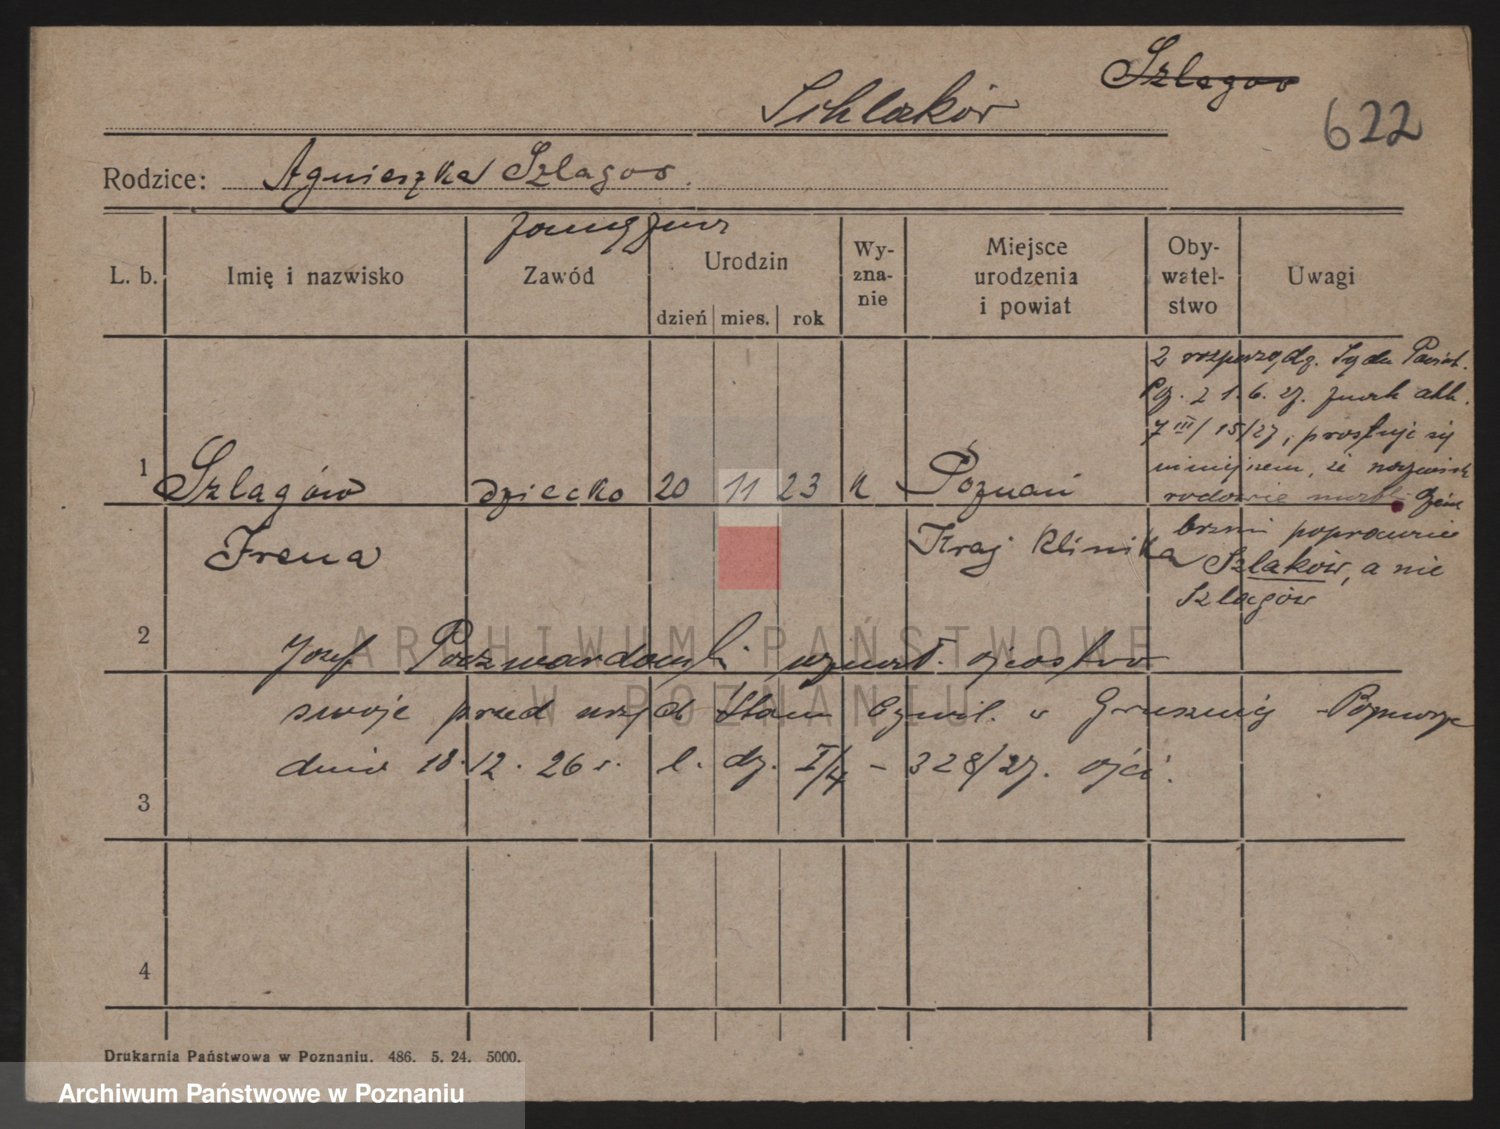 Szlagow
Schlaków
622
Rodzice: Agnieszka Szlagow.
L. b. Imię i nazwisko Zawód Urodzin dzień mies. rok Wy-zna-nie Miejsce urodzenia i powiat Oby-watel-stwo Uwagi
1 Szlagów dziecko 20 11 23 k Poznań
Irena Kraj Klinika
z rozporządz. Sądu Powiat.
z 1. 6. 27. akt.
7 III/15/27, prostuje się
niniejszem, że nazwisko
rodowe
brzmi poprawnie
Szlaków, a nie
Szlagów
2
Józef uznał ojcostwo
swoje przed urzęd. Stanu Cywil. w
dnia 18.12.26 r. l. dz. I/4 - 328/27.
3
4
ARCHIWUM PAŃSTWOWE
W POZNANIU
Drukarnia Państwowa w Poznaniu. 486. 5. 24. 5000.
Archiwum Państwowe w Poznaniu